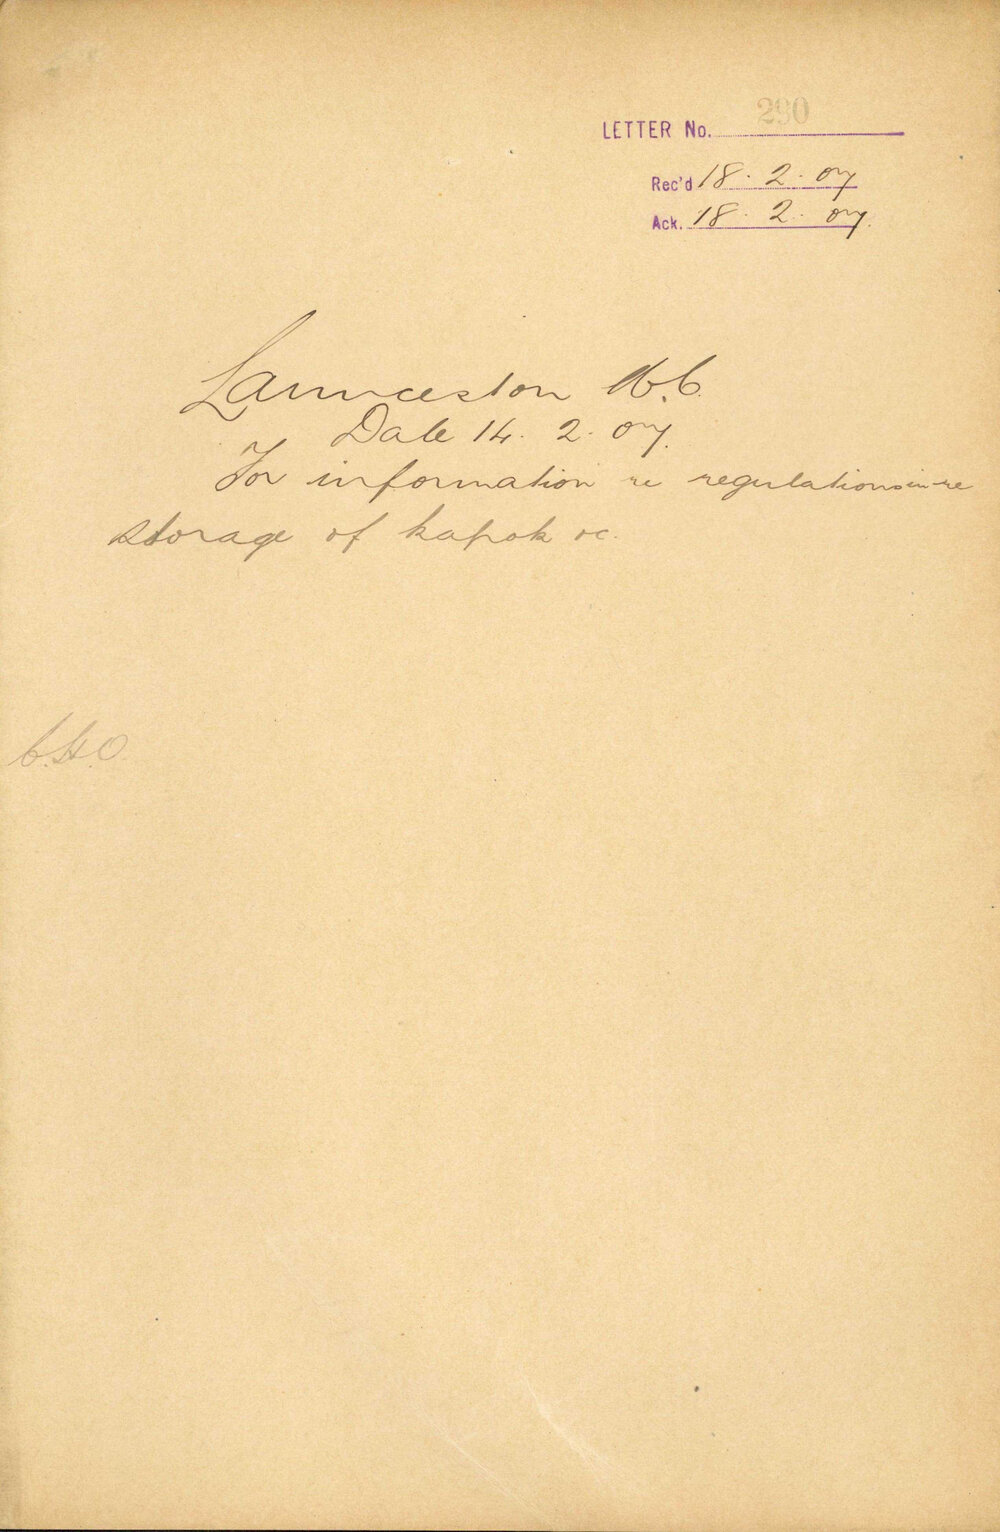 LETTER No. 290
Rec'd 18. 2. 07
Ack. 18. 2. 07.
Launceston
Date 14. 2. 07.
For information re regulations in re
storage of kapok &c.
C.H.O.